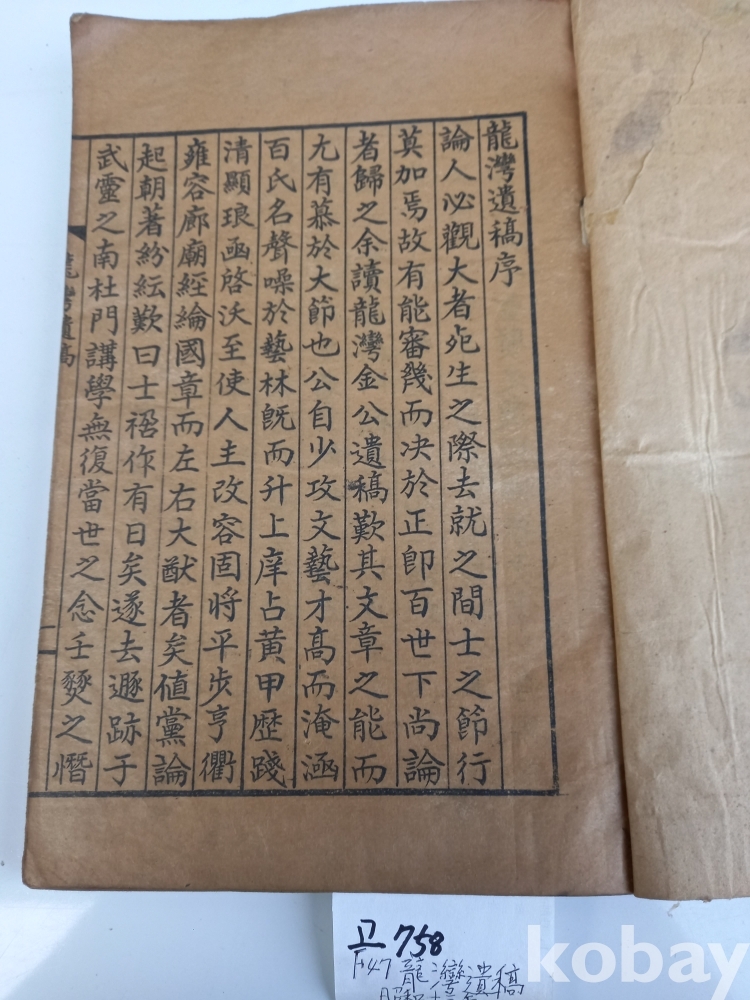 龍灣遺稿序
論人必觀大者死生之際去就之間士之節行
莫加焉故有能審幾而决於正卽百世下尚論
者歸之余讀龍灣金公遺稿歎其文章之能而
尤有慕於大節也公自少攻文藝才高而淹涵
百氏名聲噪於藝林旣而升上庠占黃甲歷踐
清顯琅函啓沃至使人主改容固將平步亨衢
雍容廊廟經綸國章而左右大猷者矣値黨論
起朝著紛紜歎曰士禍作有日矣遂去遯跡于
武靈之南杜門講學無復當世之念壬燹之憯
龍灣遺稿
一
고758
F47 龍灣遺稿
kobay